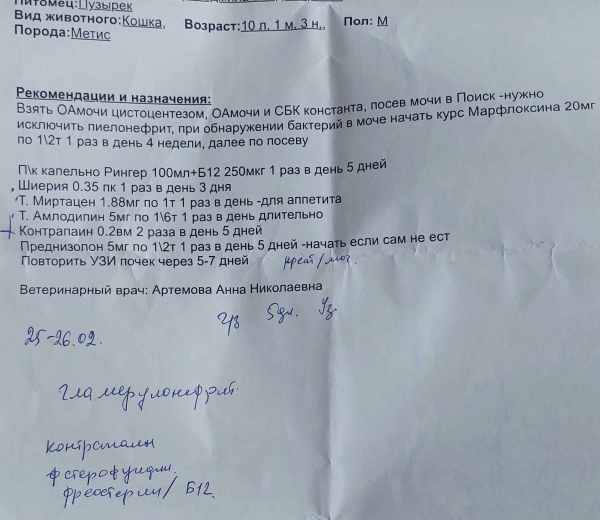 Питомец:Пузырек
Вид животного:Кошка, Возраст:10 л. 1 м. 3 н., Пол: М
Порода:Метис
Рекомендации и назначения:
Взять ОАмочи цистоцентезом, ОАмочи и СБК константа, посев мочи в Поиск -нужно
исключить пиелонефрит, при обнаружении бактерий в моче начать курс Марфлоксина 20мг
по 1\2т 1 раз в день 4 недели, далее по посеву
П\к капельно Рингер 100мл+Б12 250мкг 1 раз в день 5 дней
Шиерия 0.35 пк 1 раз в день 3 дня
Т. Миртацен 1.88мг по 1т 1 раз в день -для аппетита
Т. Амлодипин 5мг по 1\6т 1 раз в день длительно
+ Контрапаин 0.2вм 2 раза в день 5 дней
Преднизолон 5мг по 1\2т 1 раз в день 5 дней -начать если сам не ест
Повторить УЗИ почек через 5-7 дней креат/моч.
Ветеринарный врач: Артемова Анна Николаевна
ч/з 5дн. Уз
25-26.02.
гламерулонефрит
контрикалы
стерофундин
/ Б12.